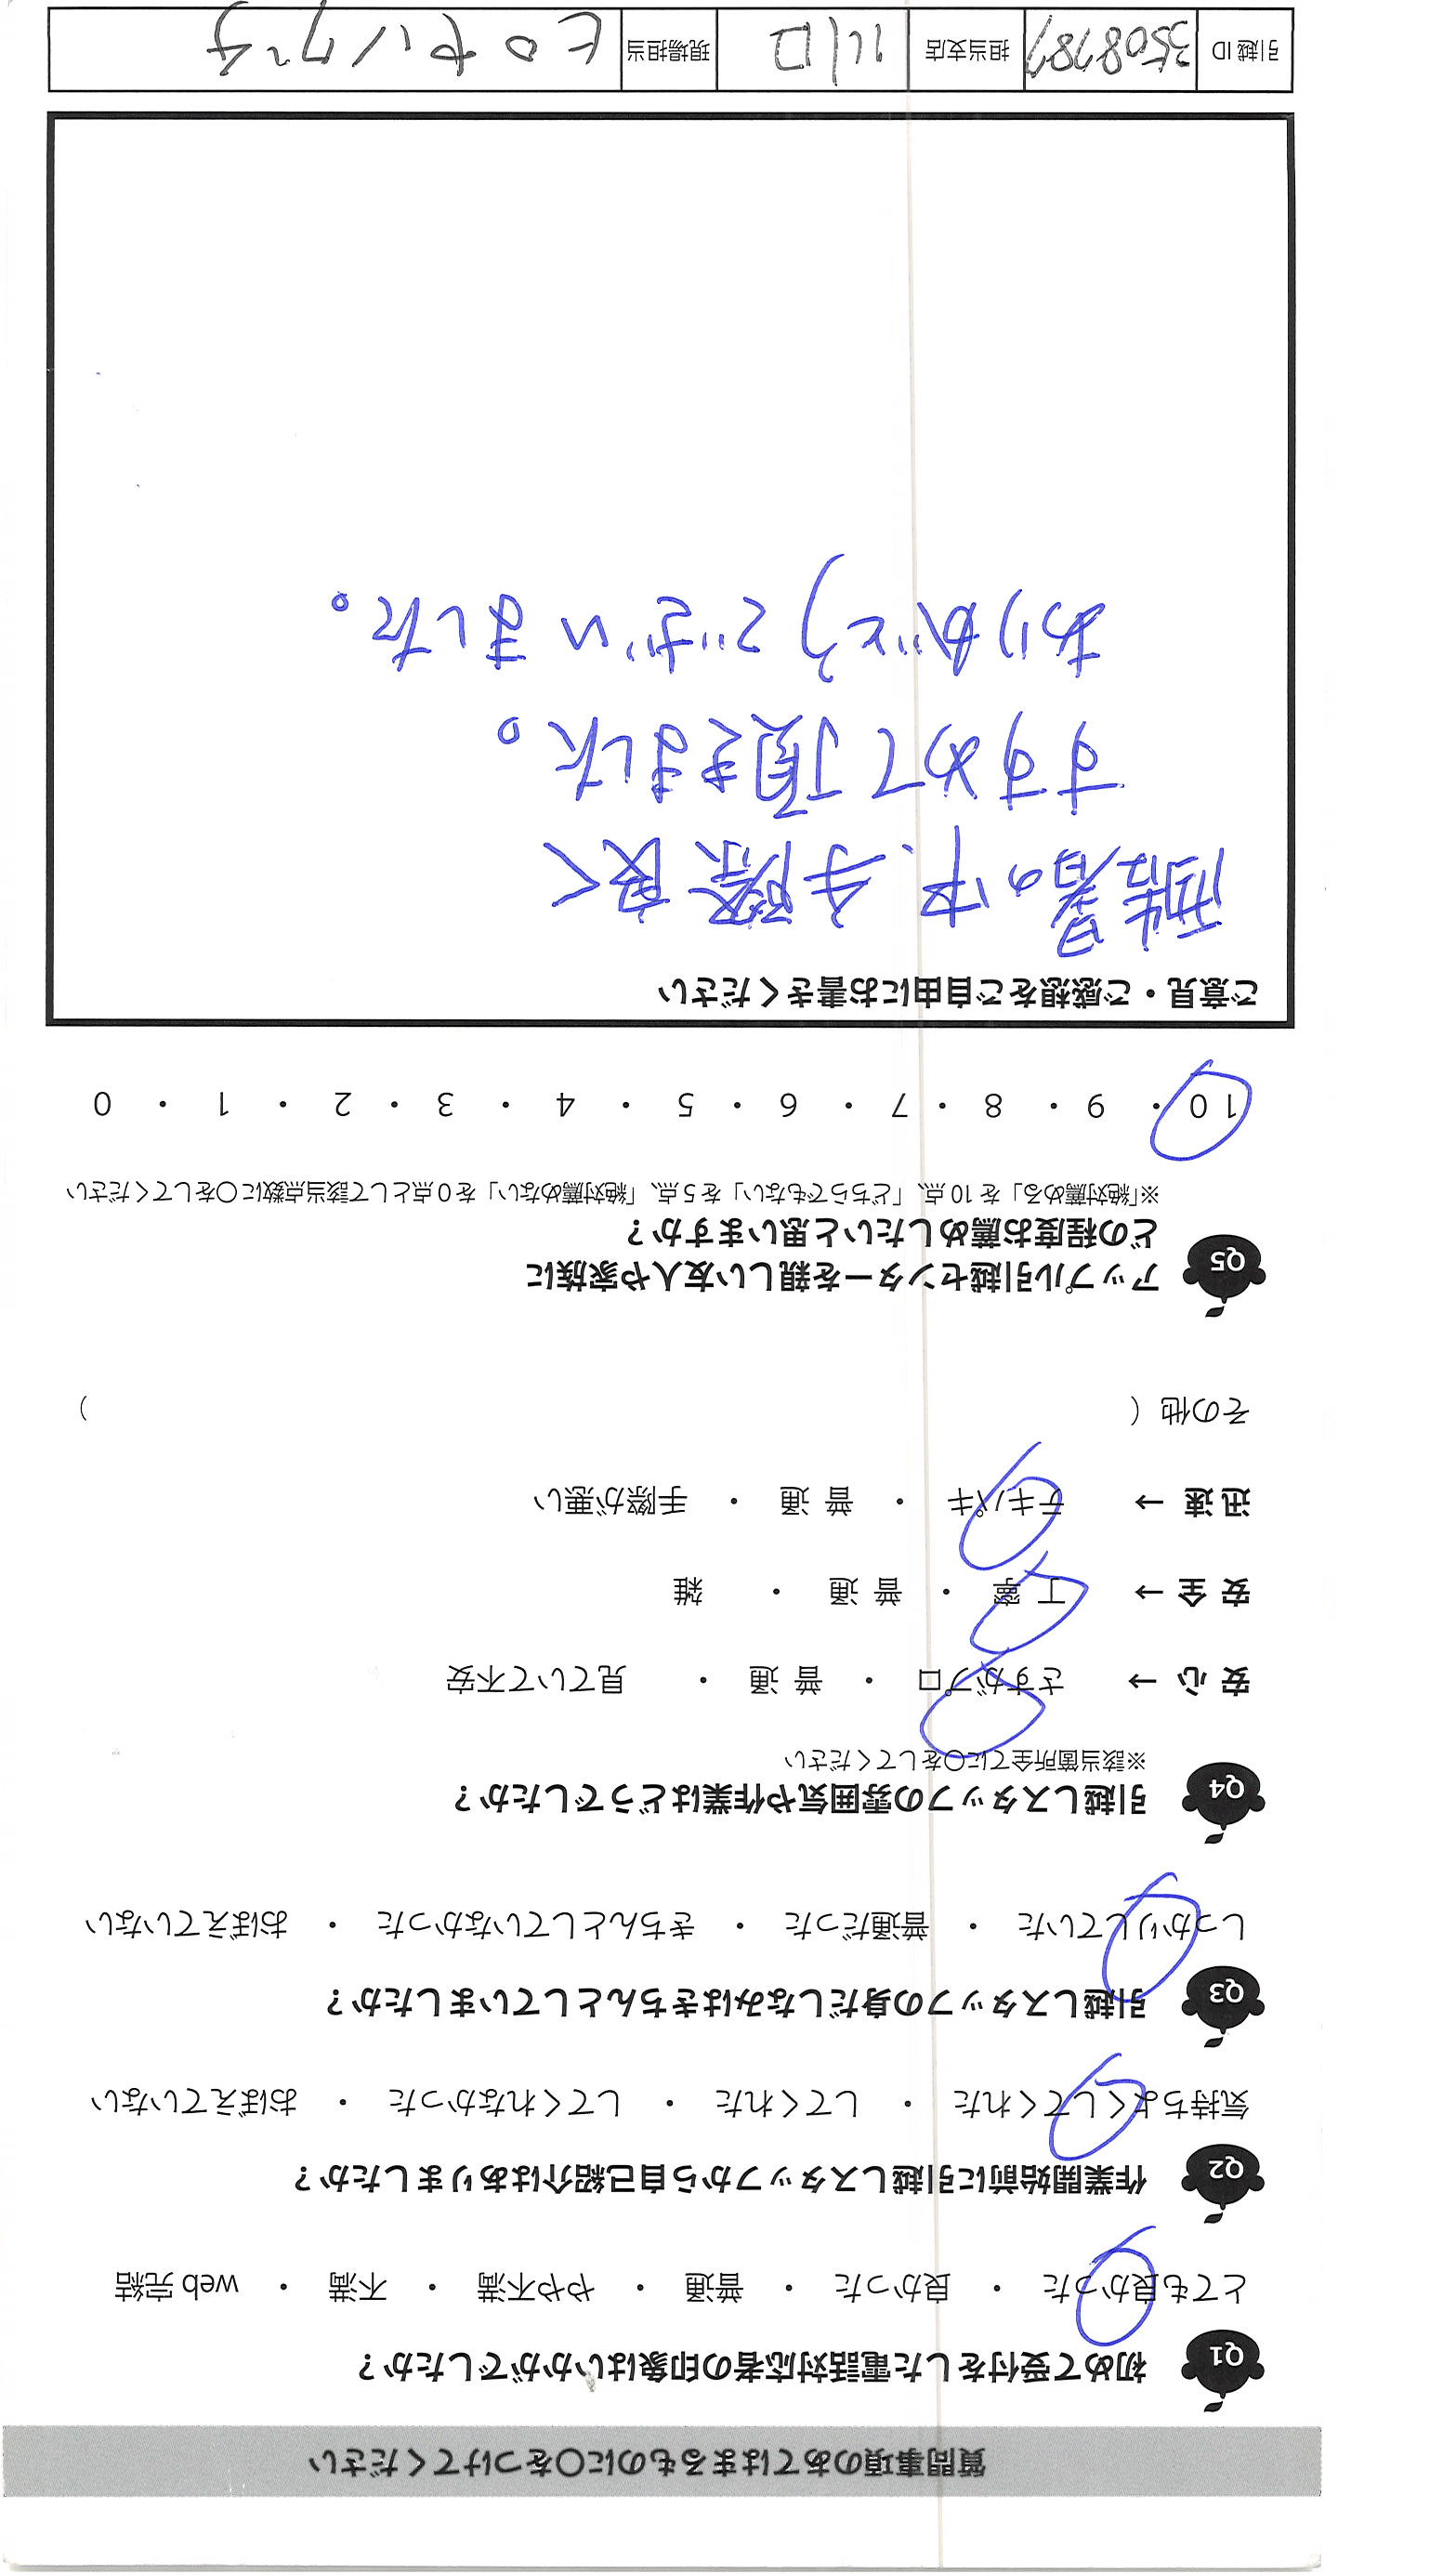 質問事項のあてはまるものに○をつけてください
Q1 初めて受付をした電話対応者の印象はいかがでしたか？
とても良かった ・ 良かった ・ 普通 ・ やや不満 ・ 不満 ・ web 完結
Q2 作業開始前に引越しスタッフから自己紹介はありましたか？
気持ちよくしてくれた ・ してくれた ・ してくれなかった ・ おぼえていない
Q3 引越しスタッフの身だしなみはきちんとしていましたか？
しっかりしていた ・ 普通だった ・ きちんとしていなかった ・ おぼえていない
Q4 引越しスタッフの雰囲気や作業はどうでしたか？
※該当箇所全てに○をしてください
安 心 → さすがプロ ・ 普 通 ・ 見ていて不安
安 全 → 丁 寧 ・ 普 通 ・ 雑
迅 速 → テキパキ ・ 普 通 ・ 手際が悪い
その他（ ）
Q5 アップル引越センターを親しい友人や家族に
どの程度お薦めしたいと思いますか？
※「絶対薦める」を 10 点、「どちらでもない」を 5 点、「絶対薦めない」を 0 点として該当点数に○をしてください
10 ・ 9 ・ 8 ・ 7 ・ 6 ・ 5 ・ 4 ・ 3 ・ 2 ・ 1 ・ 0
ご意見・ご感想をご自由にお書きください
酷暑の中、手際良く
すすめて頂きました。
ありがとうございました。
引越 ID 3508787 担当支店 川口 現場担当 ヒロセ